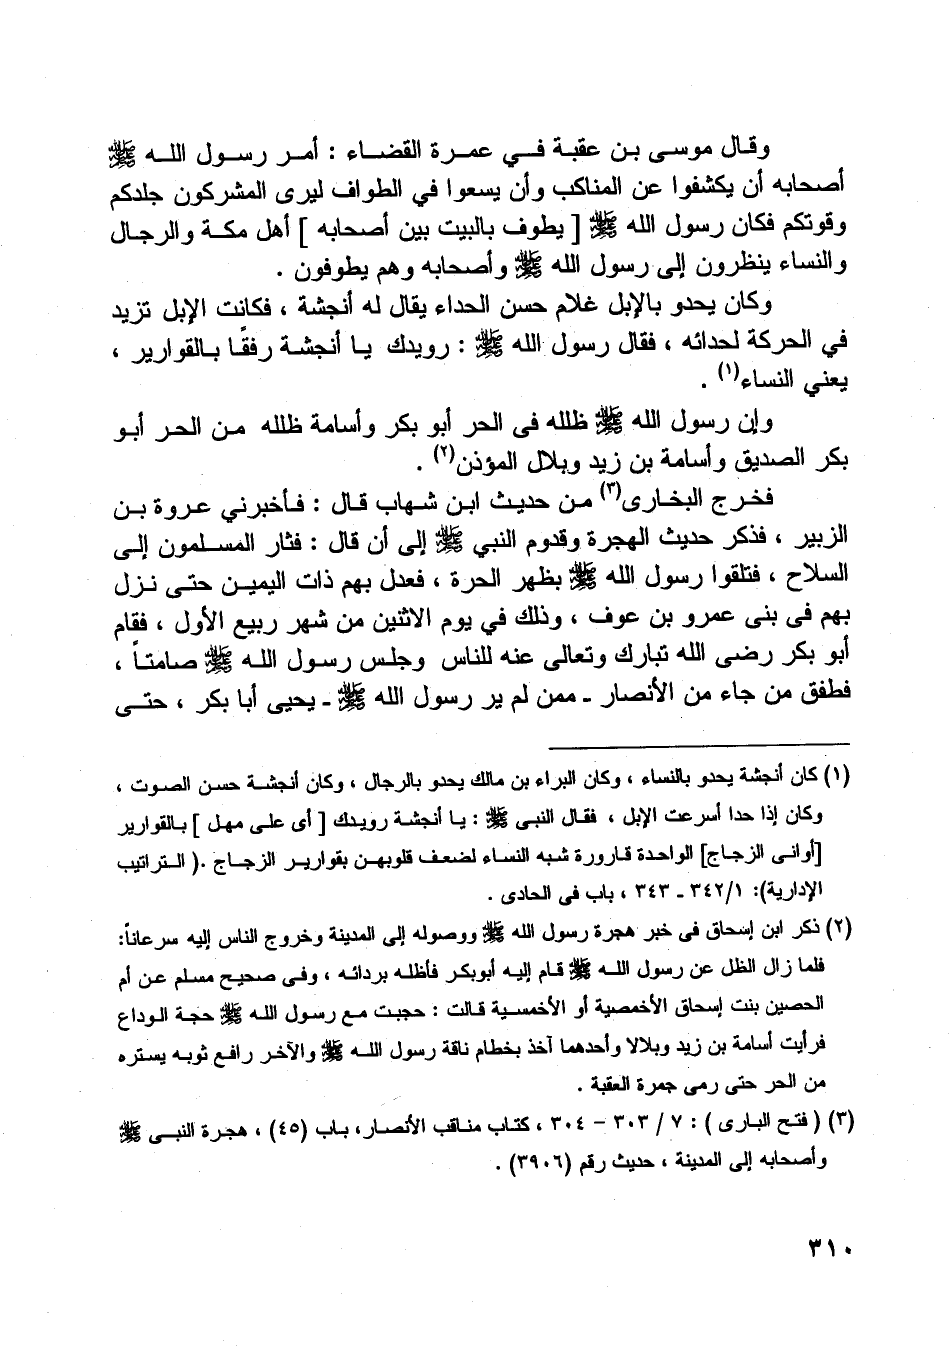 وقال موسى بن عقبة في عمرة القضاء : أمر رسول الله ﷺ
أصحابه أن يكشفوا عن المناكب وأن يسعوا في الطواف ليرى المشركون جلدكم
وقوتكم فكان رسول الله ﷺ [ يطوف بالبيت بين أصحابه ] أهل مكة والرجال
والنساء ينظرون إلى رسول الله ﷺ وأصحابه وهم يطوفون .
وكان يحدو بالإبل غلام حسن الحداء يقال له أنجشة ، فكانت الإبل تزيد
في الحركة لحدائه ، فقال رسول الله ﷺ : رويدك يا أنجشة رفقًا بالقوارير ،
يعني النساء(١) .
وإن رسول الله ﷺ ظلله فى الحر أبو بكر وأسامة ظلله من الحر أبو
بكر الصديق وأسامة بن زيد وبلال المؤذن(٢) .
فخرج البخارى(٣) من حديث ابن شهاب قال : فأخبرني عروة بن
الزبير ، فذكر حديث الهجرة وقدوم النبي ﷺ إلى أن قال : فثار المسلمون إلى
السلاح ، فتلقوا رسول الله ﷺ بظهر الحرة ، فعدل بهم ذات اليمين حتى نزل
بهم فى بنى عمرو بن عوف ، وذلك في يوم الاثنين من شهر ربيع الأول ، فقام
أبو بكر رضى الله تبارك وتعالى عنه للناس وجلس رسول الله ﷺ صامتاً ،
فطفق من جاء من الأنصار ـ ممن لم ير رسول الله ﷺ ـ يحيى أبا بكر ، حتى
(١) كان أنجشة يحدو بالنساء ، وكان البراء بن مالك يحدو بالرجال ، وكان أنجشة حسن الصوت ،
وكان إذا حدا أسرعت الإبل ، فقال النبى ﷺ : يا أنجشة رويدك [ أى على مهل ] بالقوارير
[أوانى الزجاج] الواحدة قارورة شبه النساء لضعف قلوبهن بقوارير الزجاج .( التراتيب
الإدارية): ٣٤٢/١ ـ ٣٤٣ ، باب فى الحادى .
(٢) ذكر ابن إسحاق فى خبر هجرة رسول الله ﷺ ووصوله إلى المدينة وخروج الناس إليه سرعاناً:
فلما زال الظل عن رسول الله ﷺ قام إليه أبوبكر فأظله بردائه ، وفى صحيح مسلم عن أم
الحصين بنت إسحاق الأخمصية أو الأخمسية قالت : حججت مع رسول الله ﷺ حجة الوداع
فرأيت أسامة بن زيد وبلالا وأحدهما آخذ بخطام ناقة رسول الله ﷺ والآخر رافع ثوبه يستره
من الحر حتى رمى جمرة العقبة .
(٣) ( فتح البارى ) : ٧ / ٣٠٣ – ٣٠٤ ، كتاب مناقب الأنصار، باب (٤٥) ، هجرة النبى ﷺ
وأصحابه إلى المدينة ، حديث رقم (٣٩٠٦) .
٣١٠